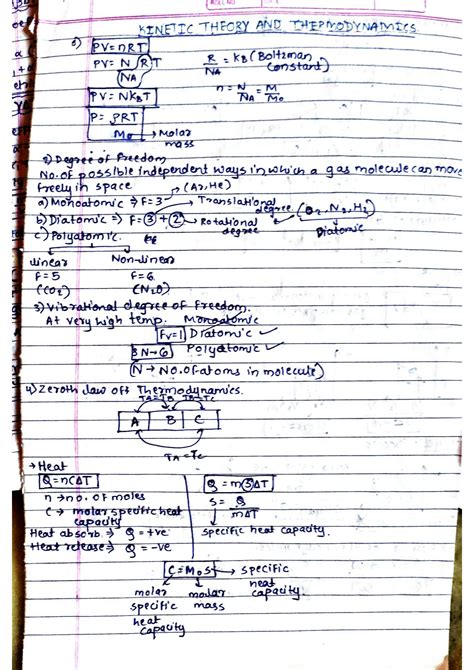 KINETIC THEORY AND THERMODYNAMICS
PV=nRT
PV= N RT
NA
R = KB (Boltzman
NA constant)
PV= NKBT
n= N = M
NA M0
P= ρRT
M0 → Molar
mass
2) Degree of Freedom
No. of possible independent ways in which a gas molecule can move
freely in space
a) Monoatomic ⇒ F=3 (Ar, He)
Translational
degree
b) Diatomic ⇒ F= 3 + 2 → Rotational
degree
(O2, N2, H2)
Diatomic
c) Polyatomic
linear Non-linear
F=5 F=6
(CO2) (N2O)
3) Vibrational degree of Freedom.
At very high temp. Monoatomic
Fv=1 Diatomic ✓
3N-6 Polyatomic ✓
(N → No. of atoms in molecule)
4) Zeroth law off Thermodynamics.
TA=TB TB=TC
A B C
TA=TC
→ Heat
Q=nCΔT
n → no. of moles
C → molar specific heat
capacity
Heat absorb ⇒ Q = +ve
Heat release ⇒ Q = -ve
Q = mSΔT
S = Q
mΔT
specific heat capacity.
C=M0S → specific
heat
capacity.
molar
specific
heat
capacity
molar
mass